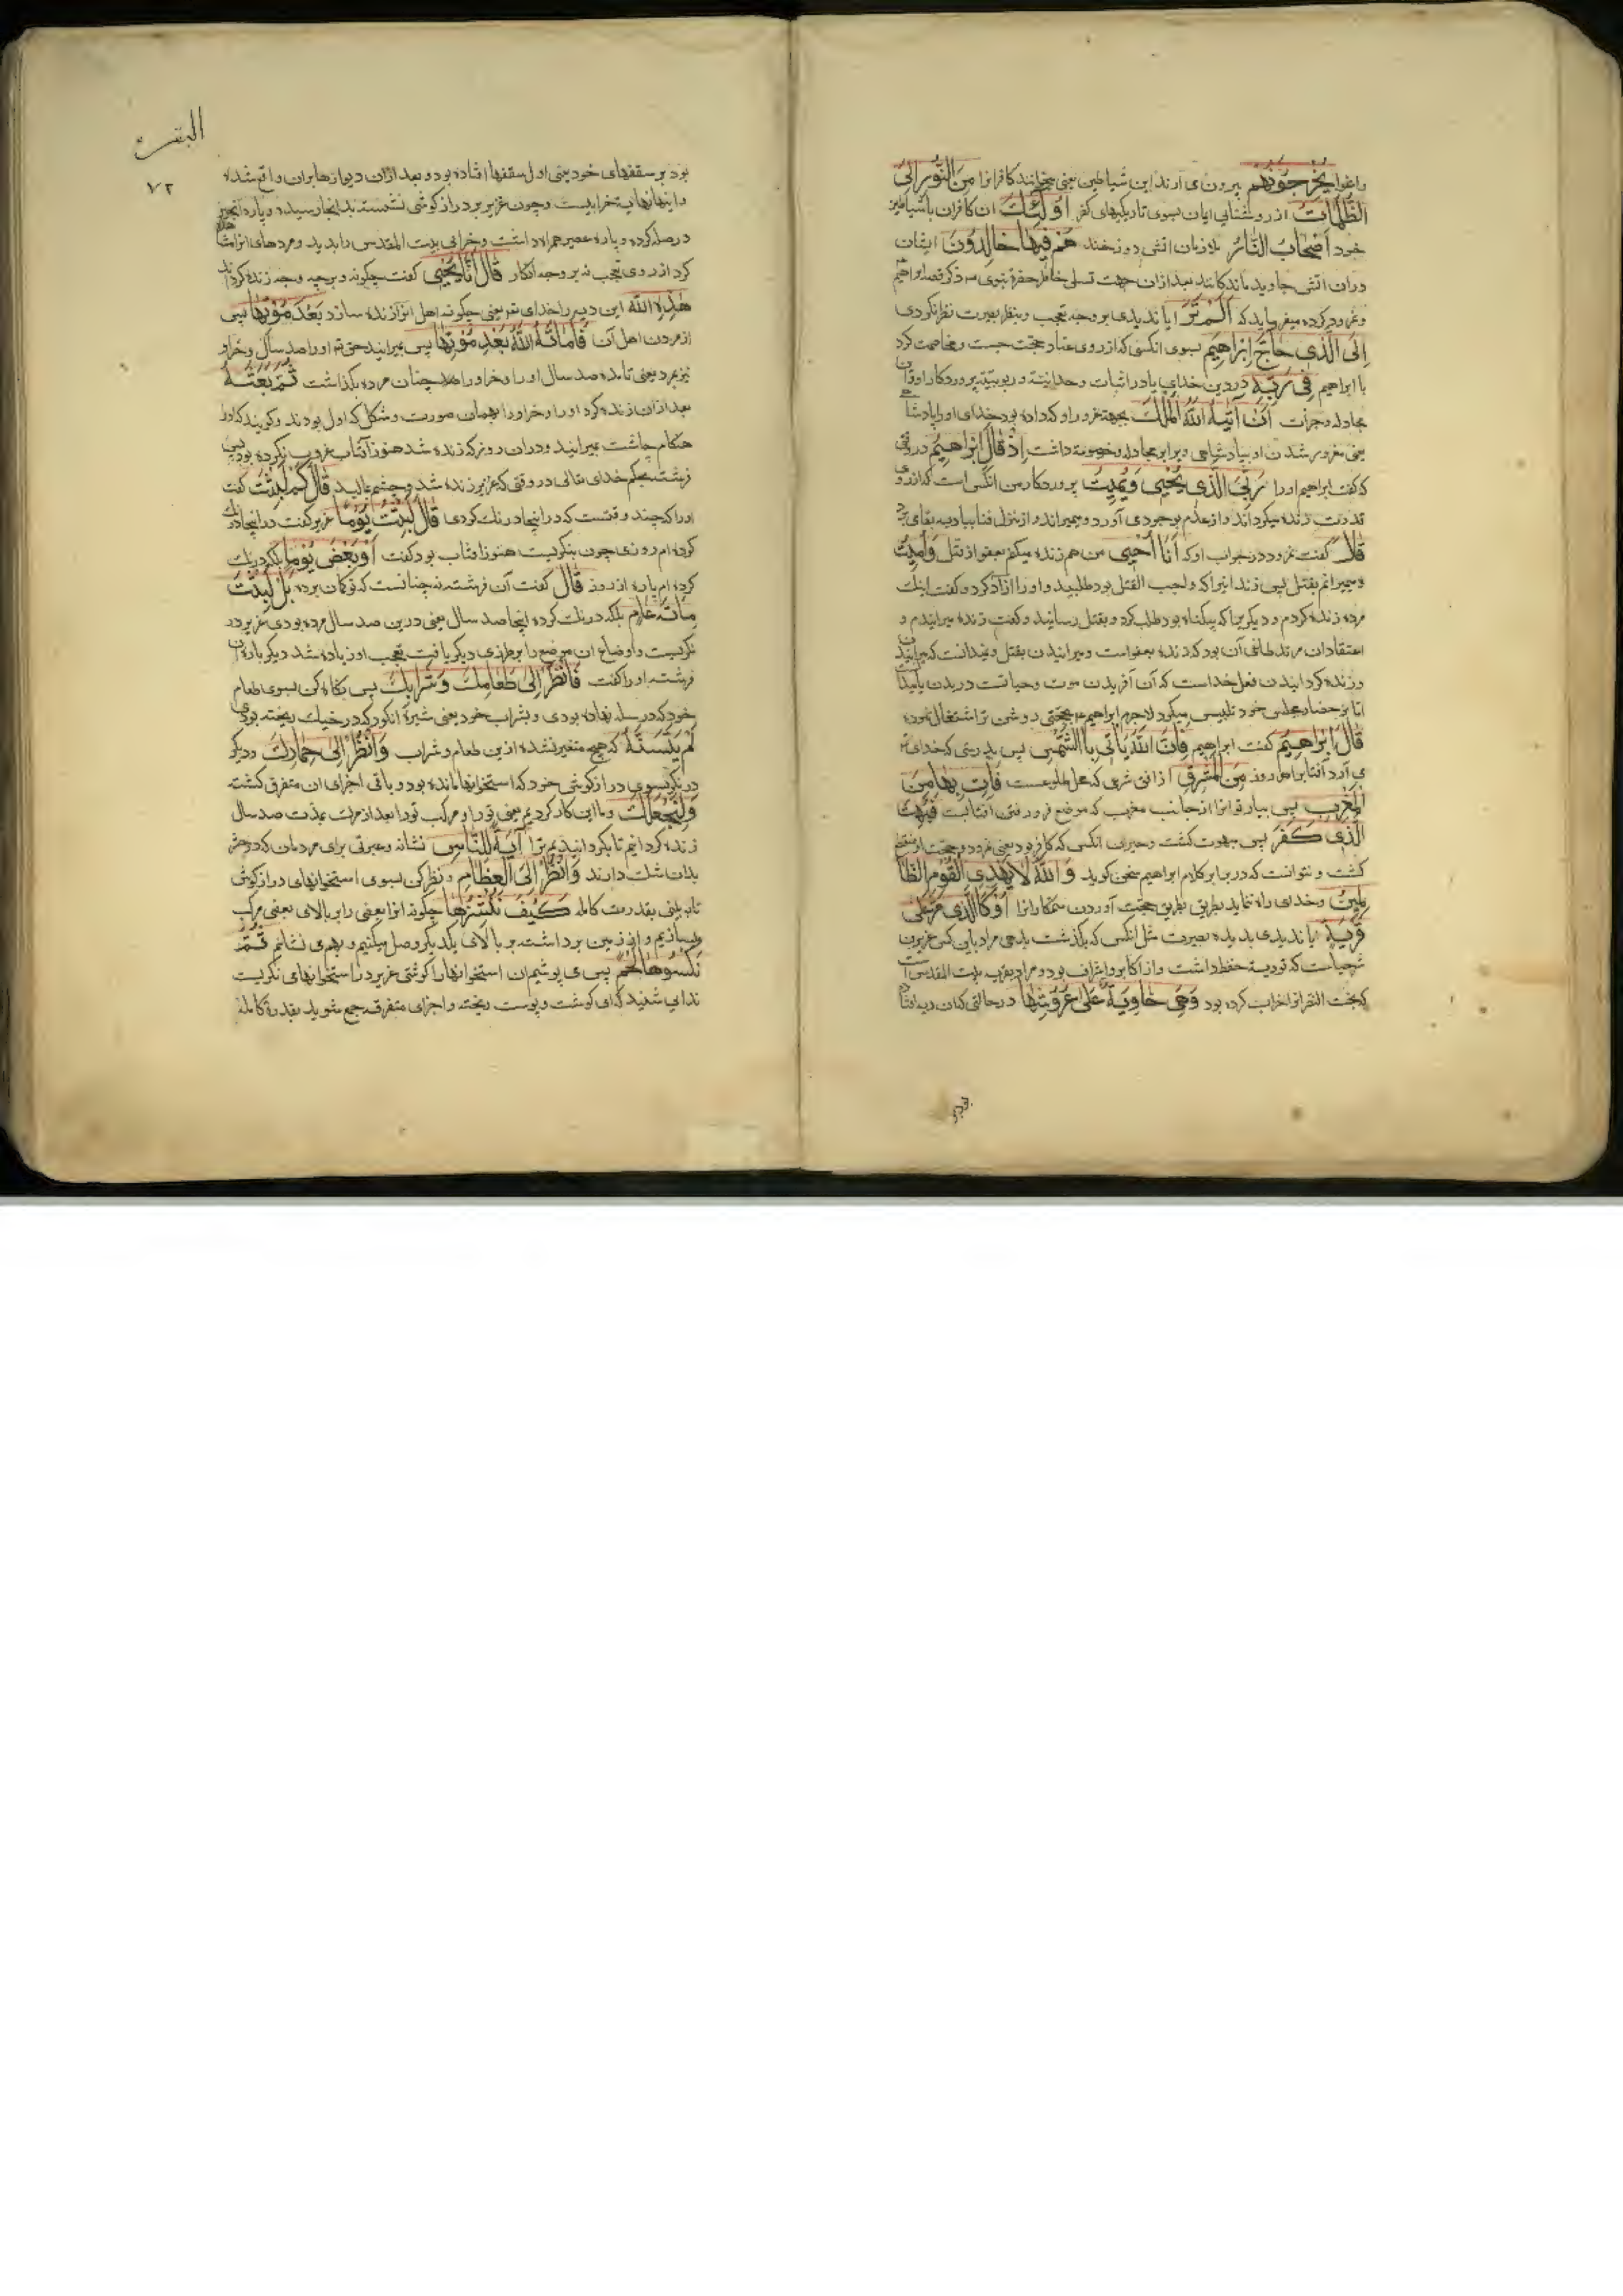 راغوا یُخْرِجُونَهُمْ بیرون می آرند این شیاطین یعنی میخوانند کافرانرا مِنَ النُّورِ اِلَی
الظُّلُمَاتِ از روشنایی ایمان بسوی تاریکیهای کفر اُولٰئِكَ ان کافران با شیاطین
خود اَصْحَابُ النَّارِ ملازمان اتش دوزخند هُمْ فِیهَا خَالِدُونَ ایشان
دران اتش جاوید ماندکانند بعد ازان جهت تسلی خاطر حضرة نبوی ذکر قصه ابراهیم
ونمرود کرده میفرماید که اَلَمْ تَرَ ایا ندیدی بر وجه تعجب وبنظر بصیرت نظر نکردی
اِلَی الَّذِی حَاجَّ اِبْرَاهِیمَ بسوی انکسی که از روی عناد حجت جست ومخاصمت کرد
با ابراهیم فِی رَبِّهِ در دین خدای یا در اثبات وحدانیت وربوبیة پروردکار او
مجادله وجرات اَنْ اٰتٰیهُ اللّٰهُ الْمُلْكَ بجهة غرور او که داده بود خدای اورا پادشا
یعنی مغرور شدن او بپادشاهی وبرابر مجادله وخصومة داشت اِذْ قَالَ اِبْرَاهِیمُ در وقتی
که کفت ابراهیم اورا رَبِّیَ الَّذِی یُحْیِی وَیُمِیتُ پروردکار من انکس است که از روی
قدرت زنده میکرداند واز عدم بوجود می آورد ومیمیراند واز منزل فنا ببادیه بقا
قَالَ کفت نمرود در جواب او که اَنَا اُحْیِی من هم زنده میکنم بعفو از قتل وَاُمِیتُ
ومیمیرانم بقتل پس زندانیرا که واجب القتل بود طلبید و اورا ازاد کرد وکفت اینك
مرده زنده کردم ودیکریرا که بیکناه بود طلب کرد وبقتل رسانید وکفت زنده میرانیدم و
اعتقاد ان مرتد طاغی آن بود که زنده بعفواست ومیرانیدن بقتل وندانست که میرانیدن
وزنده کردانیدن فعل خداست که آن آفریدن موت وحیاتست در بدن
اما بر حضار مجلس خود تلبیس میکرد لاجرم ابراهیم بحجتی روشن تر اشتغال نموده
قَالَ اِبْرَاهِیمُ کفت ابراهیم فَاِنَّ اللّٰهَ یَاْتِی بِالشَّمْسِ پس بدرستی که خدای
می آرد آفتابرا هر روز مِنَ الْمَشْرِقِ از افق شرقی که محل طلوعست فَاْتِ بِهَا مِنَ
الْمَغْرِبِ پس بیار تو انرا از جانب مغرب که موضع فرو رفتن آفتابست فَبُهِتَ
الَّذِی كَفَرَ پس مبهوت کشت وحیران انکس که کافر بود یعنی نمرود وحجت او منقطع
کشت ونتوانست که در برابر کلام ابراهیم سخن کوید وَاللّٰهُ لَا یَهْدِی الْقَوْمَ الظَّا
لِمِینَ وخدای راه ننماید بطریق حجت آوردن ستمکارانرا اَوْ كَالَّذِی مَرَّ عَلٰی
قَرْیَةٍ ایا ندیدی بدیده بصیرت مثل انکس که بکذشت بدهی مراد باین کس عزیر بن
شرحیاست که توریة حفظ داشت واز اکابر واشراف بود ومراد بقریه بیت المقدس است
که بخت النصر انرا خراب کرده بود وَهِیَ خَاوِیَةٌ عَلٰی عُرُوشِهَا در حالتی که ان دیه افتاده
البقره
۷۲
بود بر سقفهای خود یعنی اول سقفها افتاده بود وبعد ازان دیوارها بران واقع شده
واینها نهایت خرابیست وچون عزیر بر دراز کوشی نشسته بدانجا رسیده وپاره انجیر
در صله کرده وپاره عصیر همراه داشت وخرابی بیت المقدس را بدید ومردهای انرا مشاهده
کرد از روی تعجب نه بر وجه انکار قَالَ اَنّٰی یُحْیِی کفت چکونه وبرچه وجه زنده کرداند
هٰذِهِ اللّٰهُ این دیه را خدای تعه یعنی چکونه اهل انرا زنده سازد بَعْدَ مَوْتِهَا پس
از مردن اهل آن فَاَمَاتَهُ اللّٰهُ بَعْدِ مَوْتِهَا پس بمیرانید حق تع اورا صد سال وخر او
نیز بمرد یعنی تا مده صد سال اورا وخر اورا همچنان مرده بکذاشت ثُمَّ بَعَثَهُ
بعد ازان زنده کرد اورا وخر اورا بهمان صورت وشکل که اول بودند وکویند که اورا
هنکام چاشت بمیرانید ودران روز که زنده شد هنوز آفتاب غروب نکرده بود پس
فرشته بحکم خدای تعالی در وقتی که عزیر زنده شد وچشم مالید قَالَ كَمْ لَبِثْتَ کفت
اورا که چند وقتست که در اینجا درنك کردی قَالَ لَبِثْتُ یَوْمًا عزیر کفت در اینجا درنك
کرده ام روزی چون بنکریست هنوز افتاب بود کفت اَوْ بَعْضَ یَوْمٍ بلکه درنك
کرده ام پاره از روز قَالَ کفت آن فرشته نه چنانست که تو کمان برده بَلْ لَبِثْتَ
مِائَةَ عَامٍ بلکه درنك کرده اینجا صد سال یعنی درین صد سال مرده بودی عزیر در
نکریست واوضاع ان موضع را بر طرزی دیکر یافت تعجب او زیاده شد دیکر باره ان
فرشته اورا کفت فَانْظُرْ اِلٰی طَعَامِكَ وَشَرَابِكَ پس نکاه کن بسوی طعام
خود که در سله نهاده بودی وبشراب خود یعنی شیرۀ انکور که در خیك ریخته بودی
لَمْ یَتَسَنَّهْ که هیچ متغیر نشده ازین طعام وشراب وَانْظُرْ اِلٰی حِمَارِكَ ودیکر
در نکر بسوی دراز کوش خود که استخوانها مانده بود وباقی اجزای ان متفرق کشته
وَلِنَجْعَلَكَ وما این کار کردیم یعنی تورا ومرکب تورا بعد از مرك بمدت صد سال
زنده کردانیم تا بکردانیم ترا اٰیَةً لِلنَّاسِ نشانه وعبرتی برای مردمان که در حشر
بدان شك دارند وَانْظُرْ اِلَی الْعِظَامِ ونظر کن بسوی استخوانهای دراز کوش
تا ببینی بقدرت کامله كَیْفَ نُنْشِزُهَا چکونه انرا بعضی را بر بالای بعضی مرکب
میسازیم واز زمین برداشته بر بالای یکدیکر وصل میکنیم وبهم می نشانیم ثُمَّ
نَكْسُوهَا لَحْمًا پس می پوشیم ان استخوانها را کوشتی عزیر در استخوانهای نکریست
ندای شنید که ای کوشت وپوست ریخته واجزای متفرقه جمع شوید بقدرة کامله